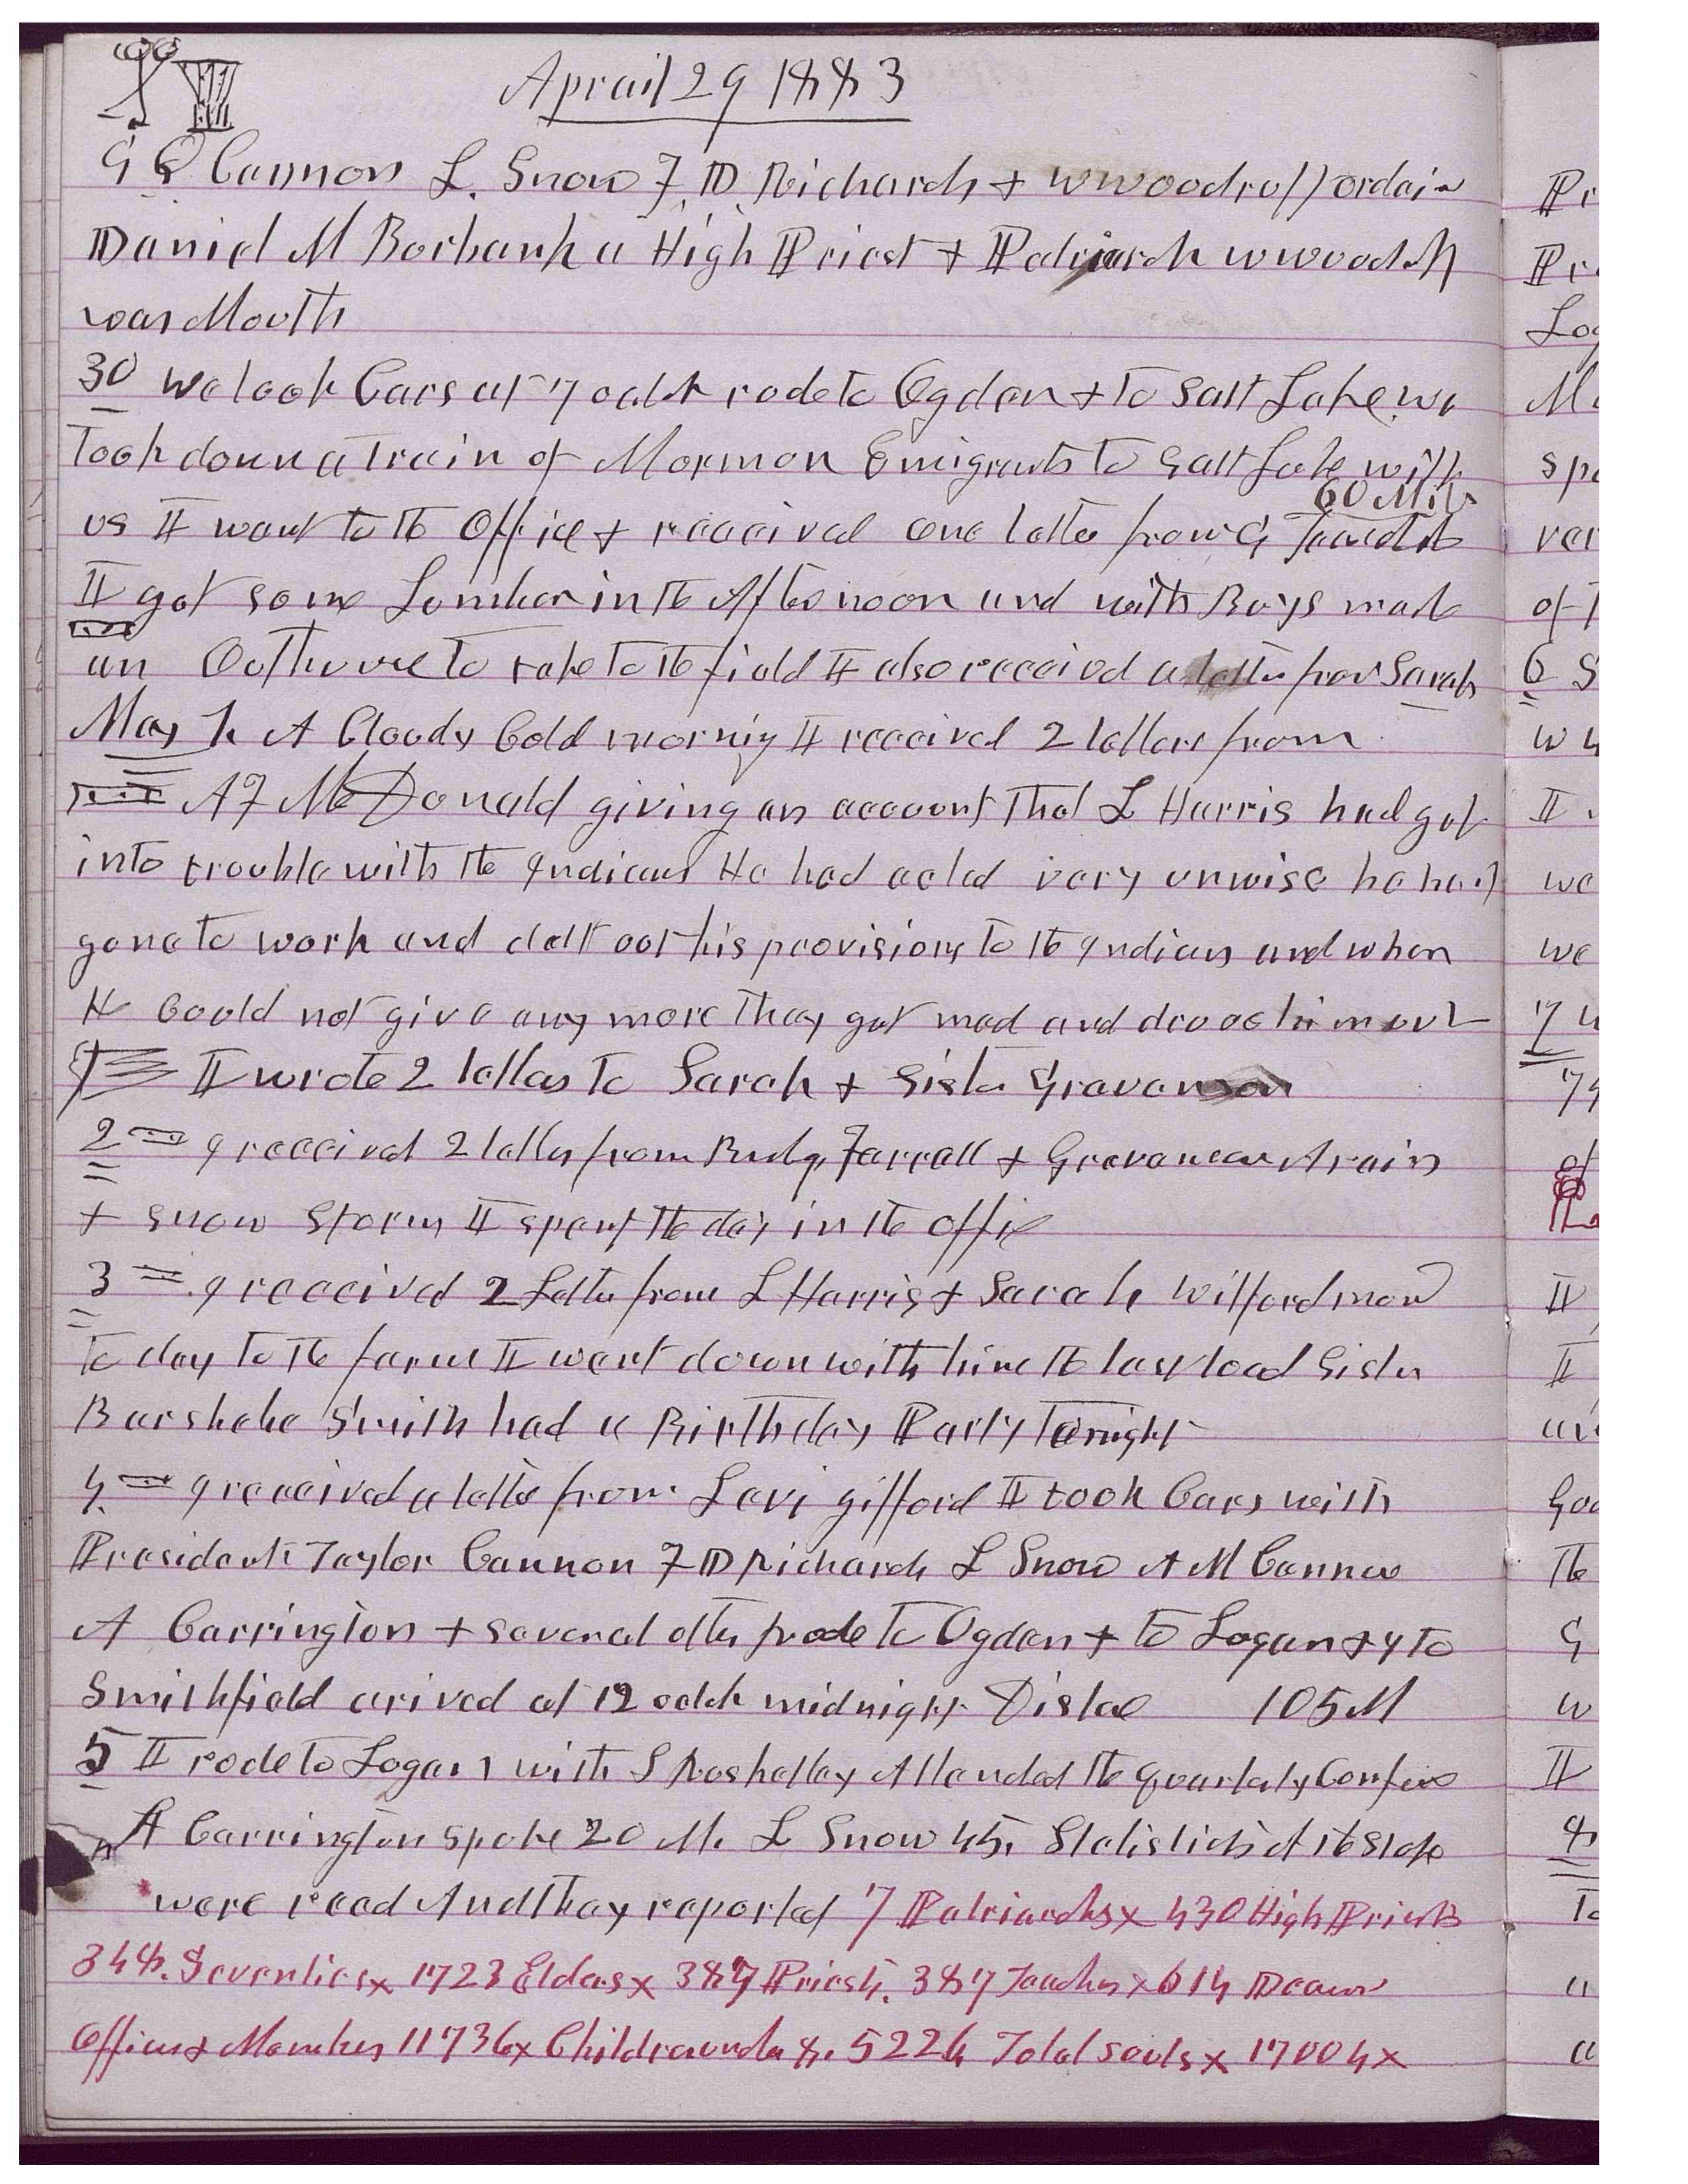 Aprail 29 1883
G Q Cannon L. Snow F. D. Richards + W Woodruff ordain
Daniel M Borbank a High Priest + Patriarch W Woodruff
was Mouth
30 we took Cars at 7 oclok rode to Ogden + to Salt Lake. we
took down a train of Mormon Emigrants to Salt Lake with
60 Mils
us I went to the Office + received one letter from G
I got some Lumber in the Afternoon and with Boys made
an Outhouse to take to the field I also received a letter from Sarah
May 1. A Cloudy Cold morning I received 2 letters from
A F McDonald giving an account that L Harris had got
into trouble with the Indians He had acted very unwise he had
gone to work and delt out his provisions to the Indians and when
He Could not give any more they got mad and drove him out
I wrote 2 letters to Sarah + Sister
2 I received 2 letters from Budge, Farrell + A rain
+ snow storm I spent the day in the offic
3 I received 2 Letter from L Harris + Sarah Wilford mov
to day to the farm I went down with him the last load Sister
Barsheba Smith had a Birthday Party tonight
4. I received a letter from Levi Gifford I took Cars with
President Taylor Cannon F D Richards L Snow A M Cannon
A Carrington + several others rode to Ogden + to Logan + I to
Smithfield arived at 12 oclok midnight Distac 105 M
5 I rode to Logan with S Roskelley Attended the Quarterly Confere
A Carrington spoke 20 M. L Snow 45. Statisticks of the Stake
were read And they reported 7 Patriarchs x 430 High Priests
348. Seventies x 1723 Elders x 387 Priests. 387 Teachers x 614 Deacons
Officers + Members 11736 x Children under 8. 5226 Total souls x 17004 x